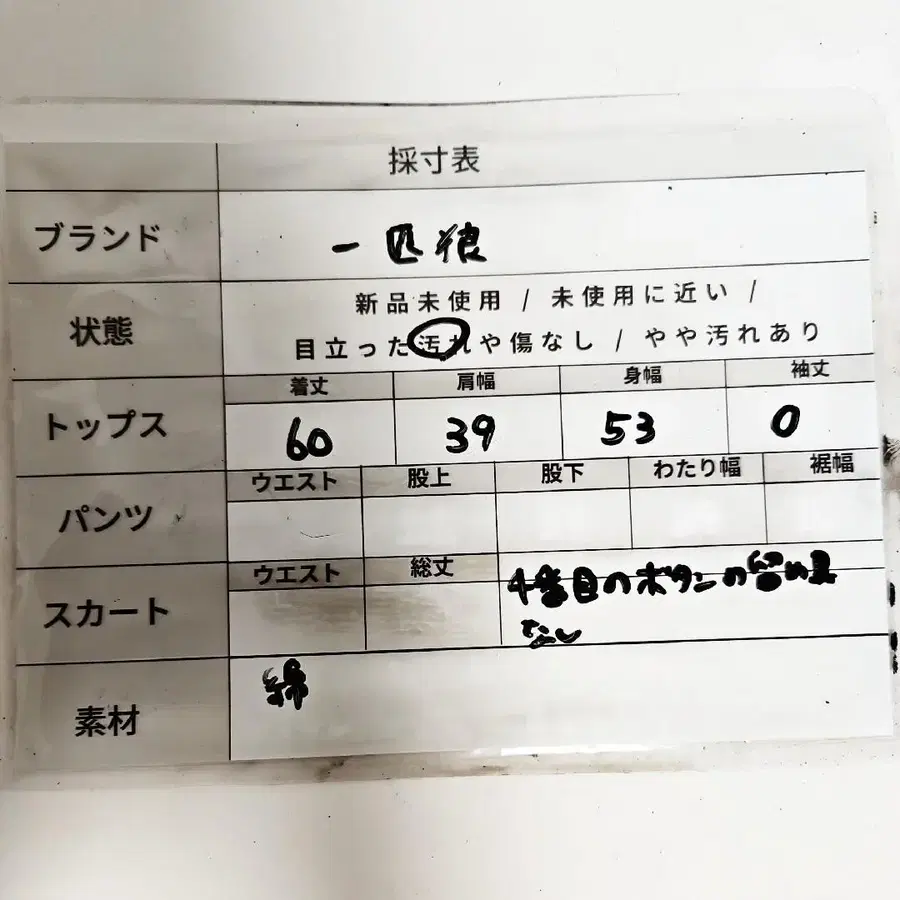 採寸表
ブランド
一匹狼
状態
新品未使用 / 未使用に近い /
目立った汚れや傷なし / やや汚れあり
トップス
着丈 肩幅 身幅 袖丈
60 39 53 0
パンツ
ウエスト 股上 股下 わたり幅 裾幅
スカート
ウエスト 総丈
4番目のボタンの留め具
なし
素材
綿